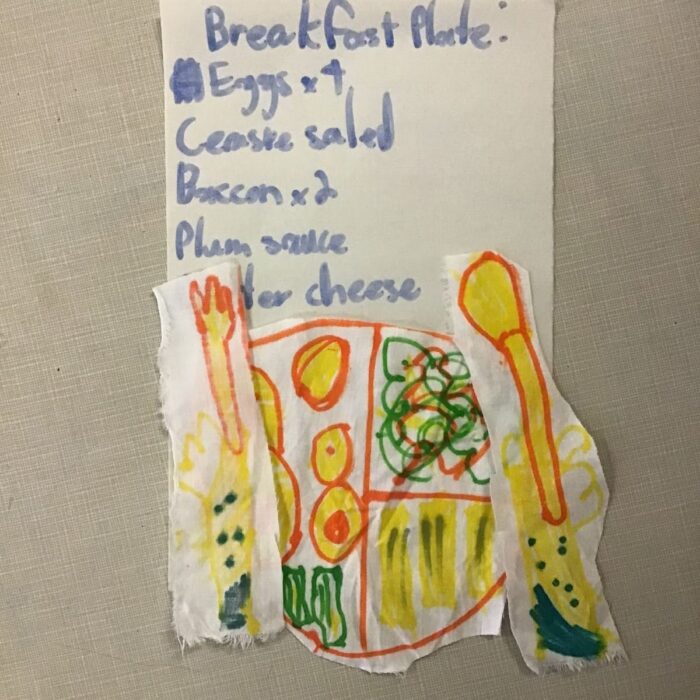 Breakfast Plate:
Eggs x 4
Ceaske salad
Baccon x 2
Plum sauce
cheese